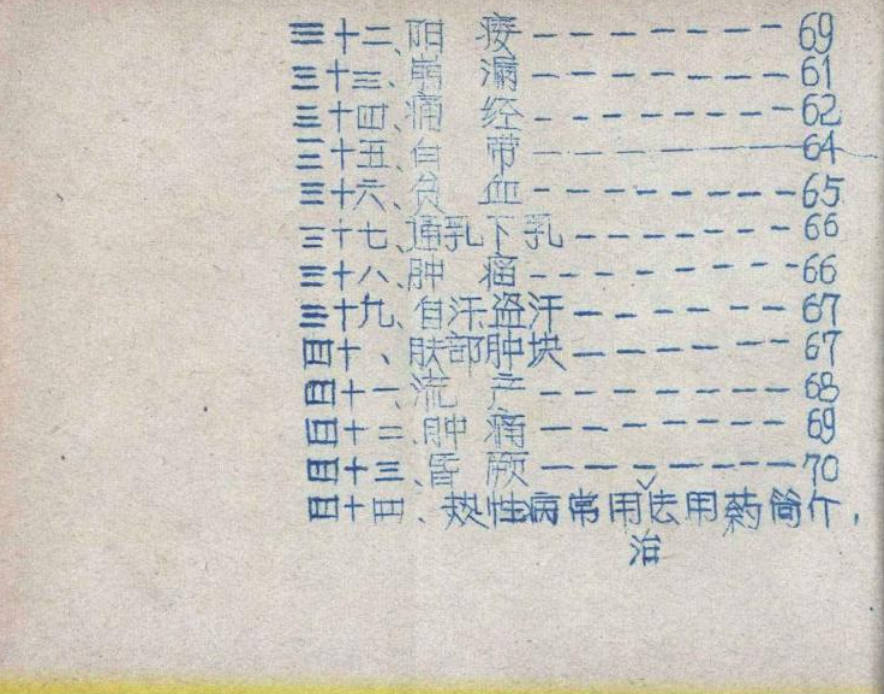 三十二、阳 痿————————69
三十三、崩 漏————————61
三十四、痛 经————————62
三十五、白 带————————64
三十六、贫 血————————65
三十七、通乳下乳——————66
三十八、肿 瘤————————66
三十九、自汗盗汗——————67
四十、肤部肿块———————67
四十一、流 产————————68
四十二、肿 痛————————69
四十三、昏 厥————————70
四十四、热性病常用法用药简介，
治